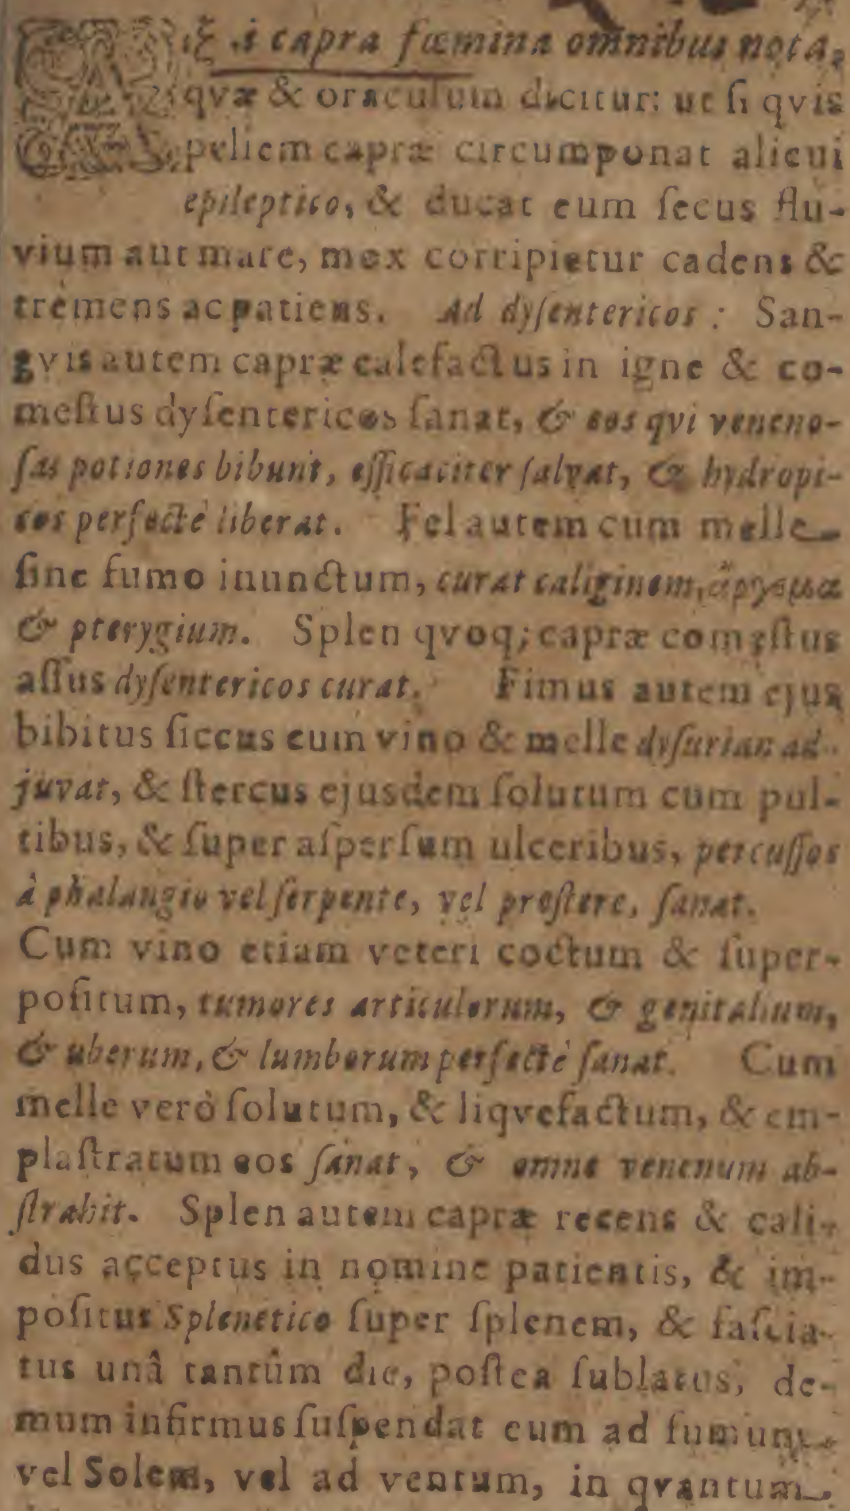 Æξ .i capra fœmina omnibus nota,
qvæ & oraculum dicitur: ut ſi qvis
pellem capræ circumponat alicui
epileptico, & ducat eum ſecus flu-
vium aut mare, mox corripietur cadens &
tremens ac patiens. Ad dyſentericos : San-
gvis autem capræ calefactus in igne & co-
meſtus dyſentericos ſanat, & eos qvi veneno-
ſas potiones bibunt, efficaciter ſalvat, & hydropi-
cos perfectè liberat. Fel autem cum melle
ſine fumo inunctum, curat caliginem, ἄργεμα
& pterygium. Splen qvoq; capræ comeſtus
aſſus dyſentericos curat. Fimus autem ejus
bibitus ſiccus cum vino & melle dyſurian ad-
juvat, & ſtercus ejusdem ſolutum cum pul-
tibus, & ſuper aſperſum ulceribus, percuſſos
à phalangio vel ſerpente, vel preſtere, ſanat.
Cum vino etiam veteri coctum & ſuper-
poſitum, tumores articulorum, & genitalium,
& uberum, & lumborum perfectè ſanat. Cum
melle verò ſolutum, & liqvefactum, & em-
plaſtratum eos ſanat, & omne venenum ab-
ſtrahit. Splen autem capræ recens & cali-
dus acceptus in nomine patientis, & im-
poſitus Splenetico ſuper ſplenem, & faſcia-
tus unâ tantûm die, poſtea ſublatus, de-
mum infirmus ſuſpendat eum ad fumum
vel Solem, vel ad ventum, in qvantum